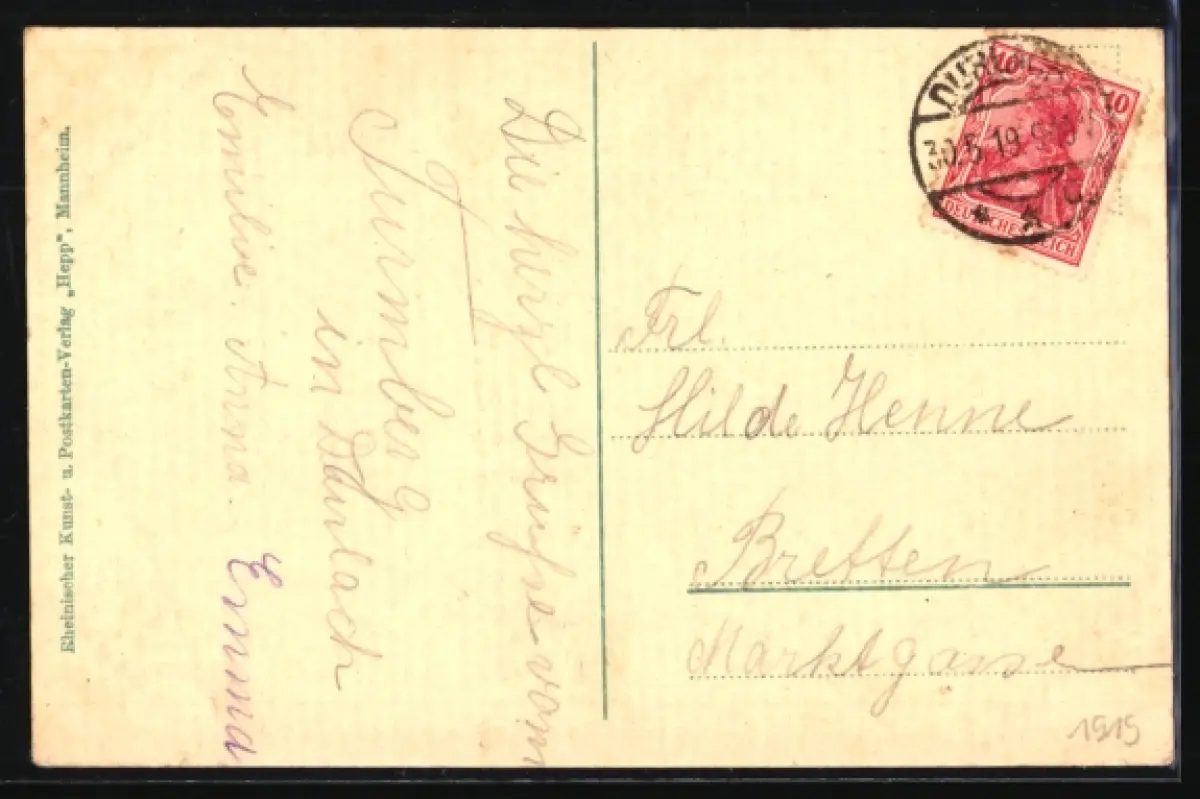 Die herzl Grüße vom
Turmberg
in Durlach
Emilie. Anna. Emma
Rheinischer Kunst- u. Postkarten-Verlag „Hepp", Mannheim.
DURLACH
30.5.19. 9
10
10
DEUTSCHES REICH
Frl.
Hilde Henne
Bretten
Marktgasse
1919